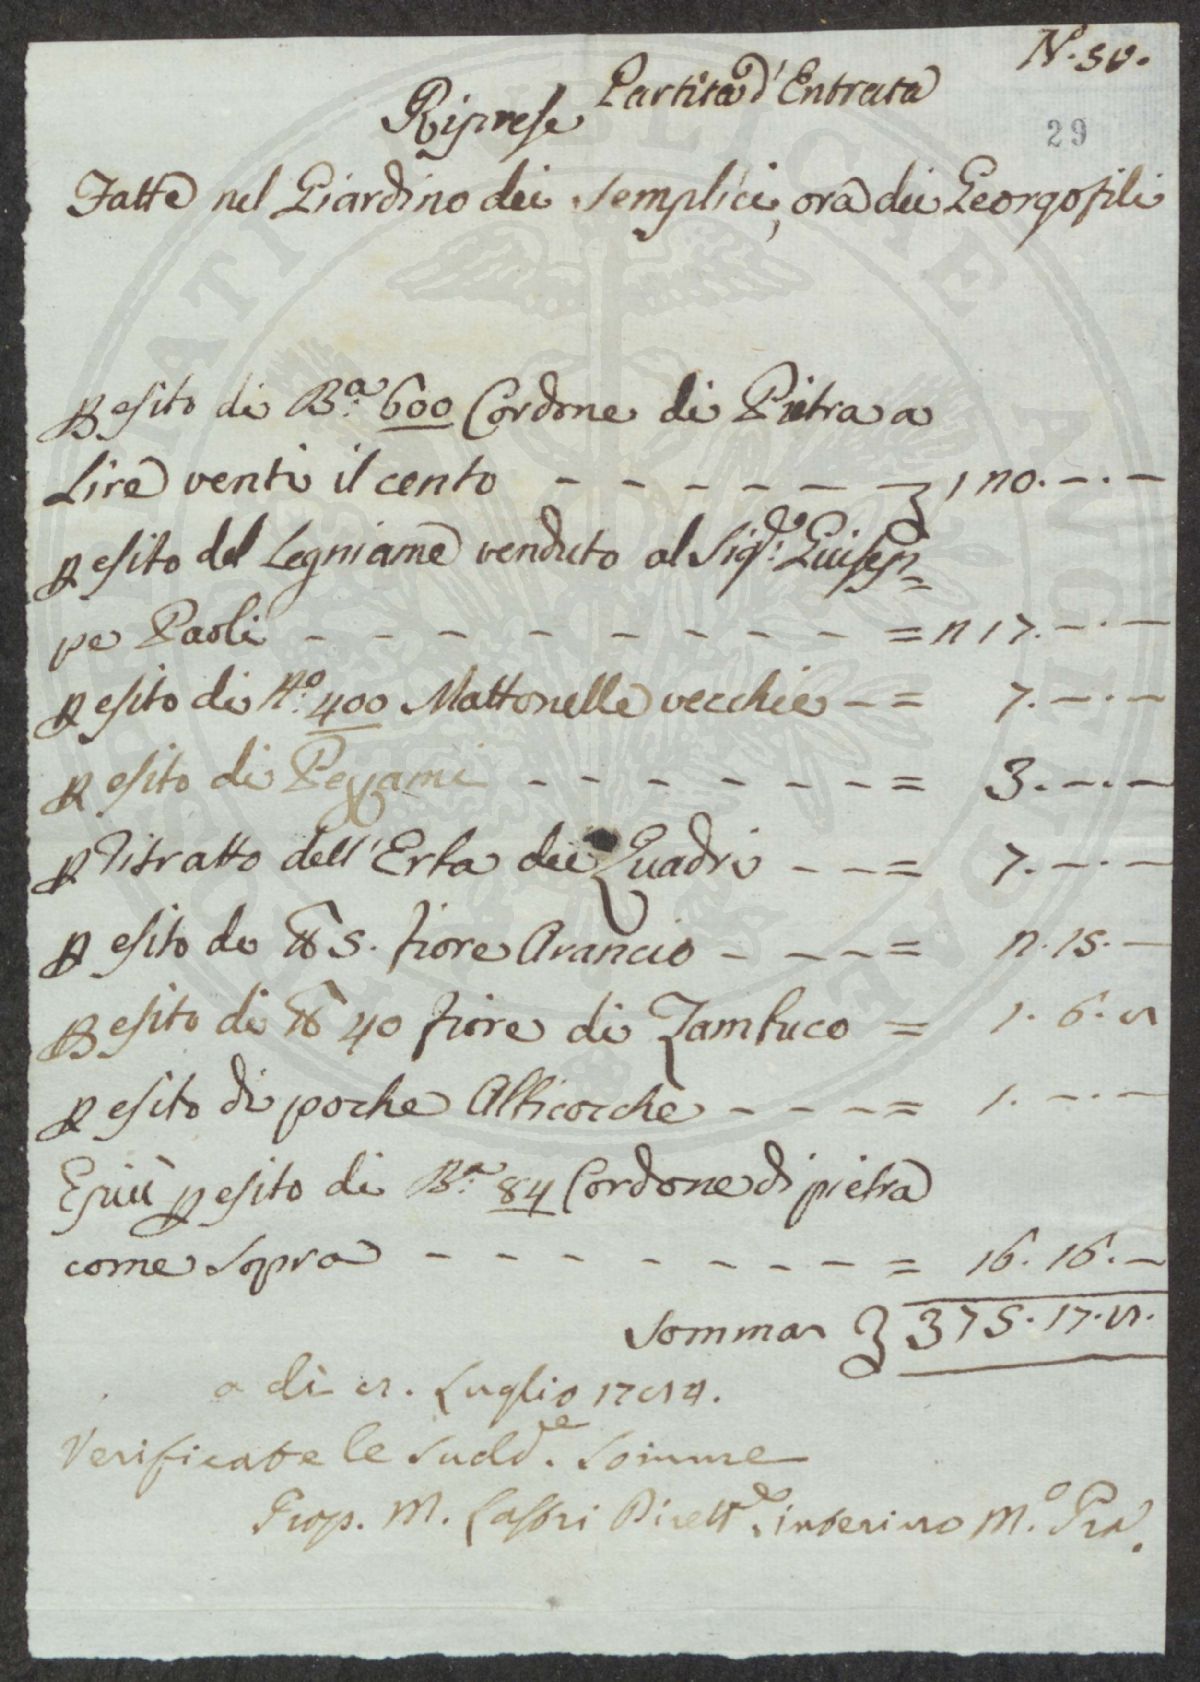 Partita d'Entrata
N.º
Riprese
29
Fatte nel Giardino dei Semplici, ora dei Georgofili
P esito di B.a 600 Cordone di Pietra a
Lire venti il cento - - - - - - - £ 120. -. -
P esito del Legniame venduto al Sig.e Giusep=
pe Paoli - - - - - - - - - = 217. -. -
P esito di N.o 400 Mattonelle vecchie - = 7. -. -
P esito di Pezzami - - - - - - - = 3. -. -
P Ritratto dell'Erba dei Quadri - - = 7. -. -
P esito di ℔ 5. fiore Arancio - - - = 2. 15. -
P esito di ℔ 40 fiore di Zambuco = 1. 6. 8
P esito di poche Albicocche - - - = 1. -. -
E più P esito di B.a 84 Cordone di pietra
come Sopra - - - - - - - = 16. 16. -
Somma £ 375. 17. 8.
a dì 8. Luglio 1784.
Verificate le Sudd.e Somme
Prop. M. Lastri Dirett.e interino M.o